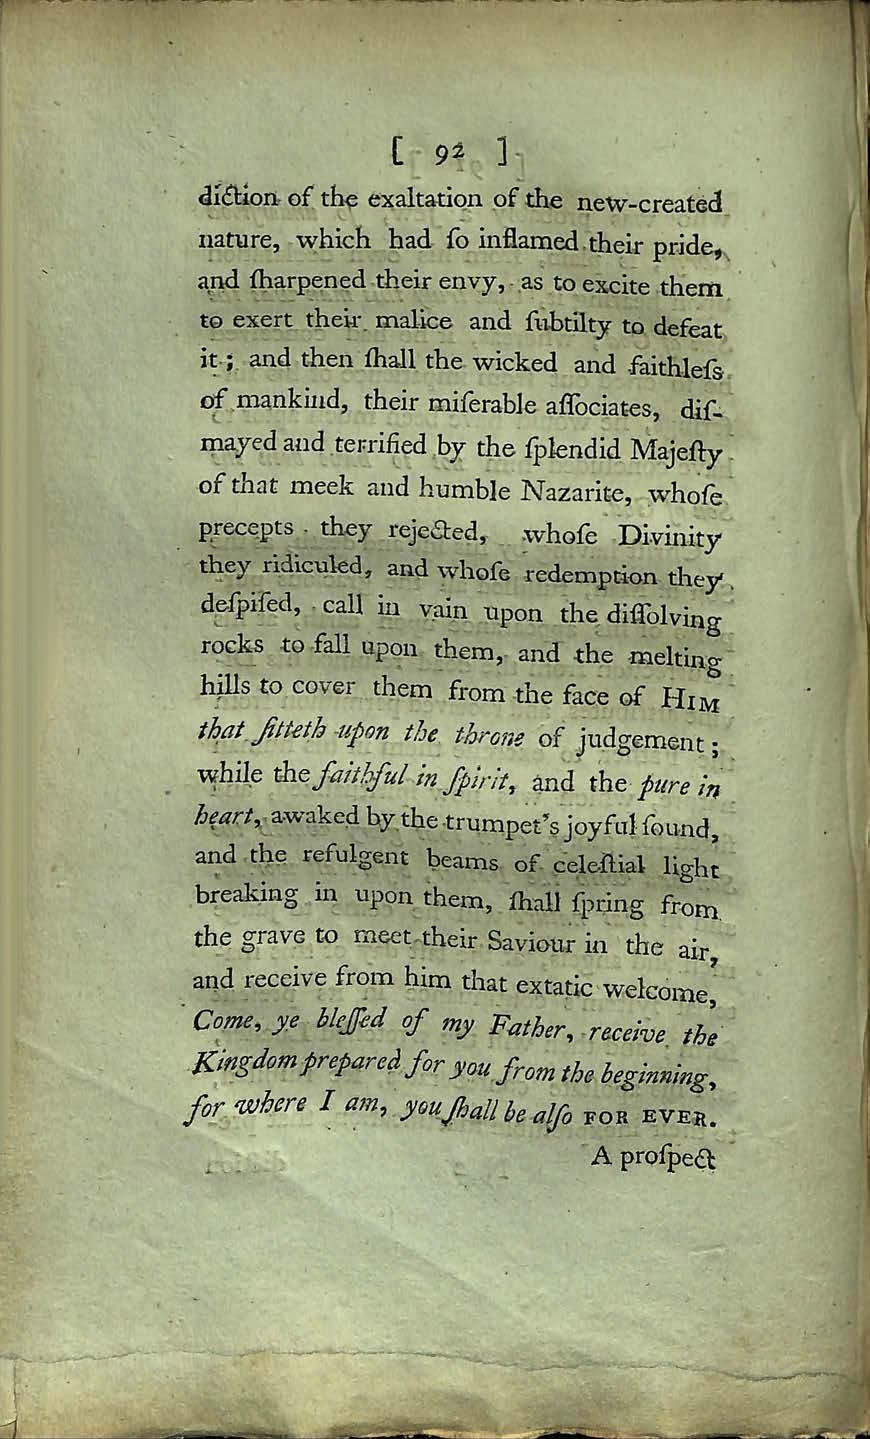 [ 92 ]
diction of the exaltation of the new-created
nature, which had ſo inflamed their pride,
and ſharpened their envy, as to excite them
to exert their malice and ſubtilty to defeat
it; and then ſhall the wicked and faithleſs
of mankind, their miſerable aſſociates, diſ-
mayed and terrified by the ſplendid Majeſty
of that meek and humble Nazarite, whoſe
precepts they rejected, whoſe Divinity
they ridiculed, and whoſe redemption they
deſpiſed, call in vain upon the diſſolving
rocks to fall upon them, and the melting
hills to cover them from the face of HIM
that ſitteth upon the throne of judgement;
while the faithful in ſpirit, and the pure in
heart, awaked by the trumpet's joyful ſound,
and the refulgent beams of celeſtial light
breaking in upon them, ſhall ſpring from
the grave to meet their Saviour in the air,
and receive from him that extatic welcome,
Come, ye bleſſed of my Father, receive the
Kingdom prepared for you from the beginning,
for where I am, you ſhall be alſo FOR EVER.
A proſpect